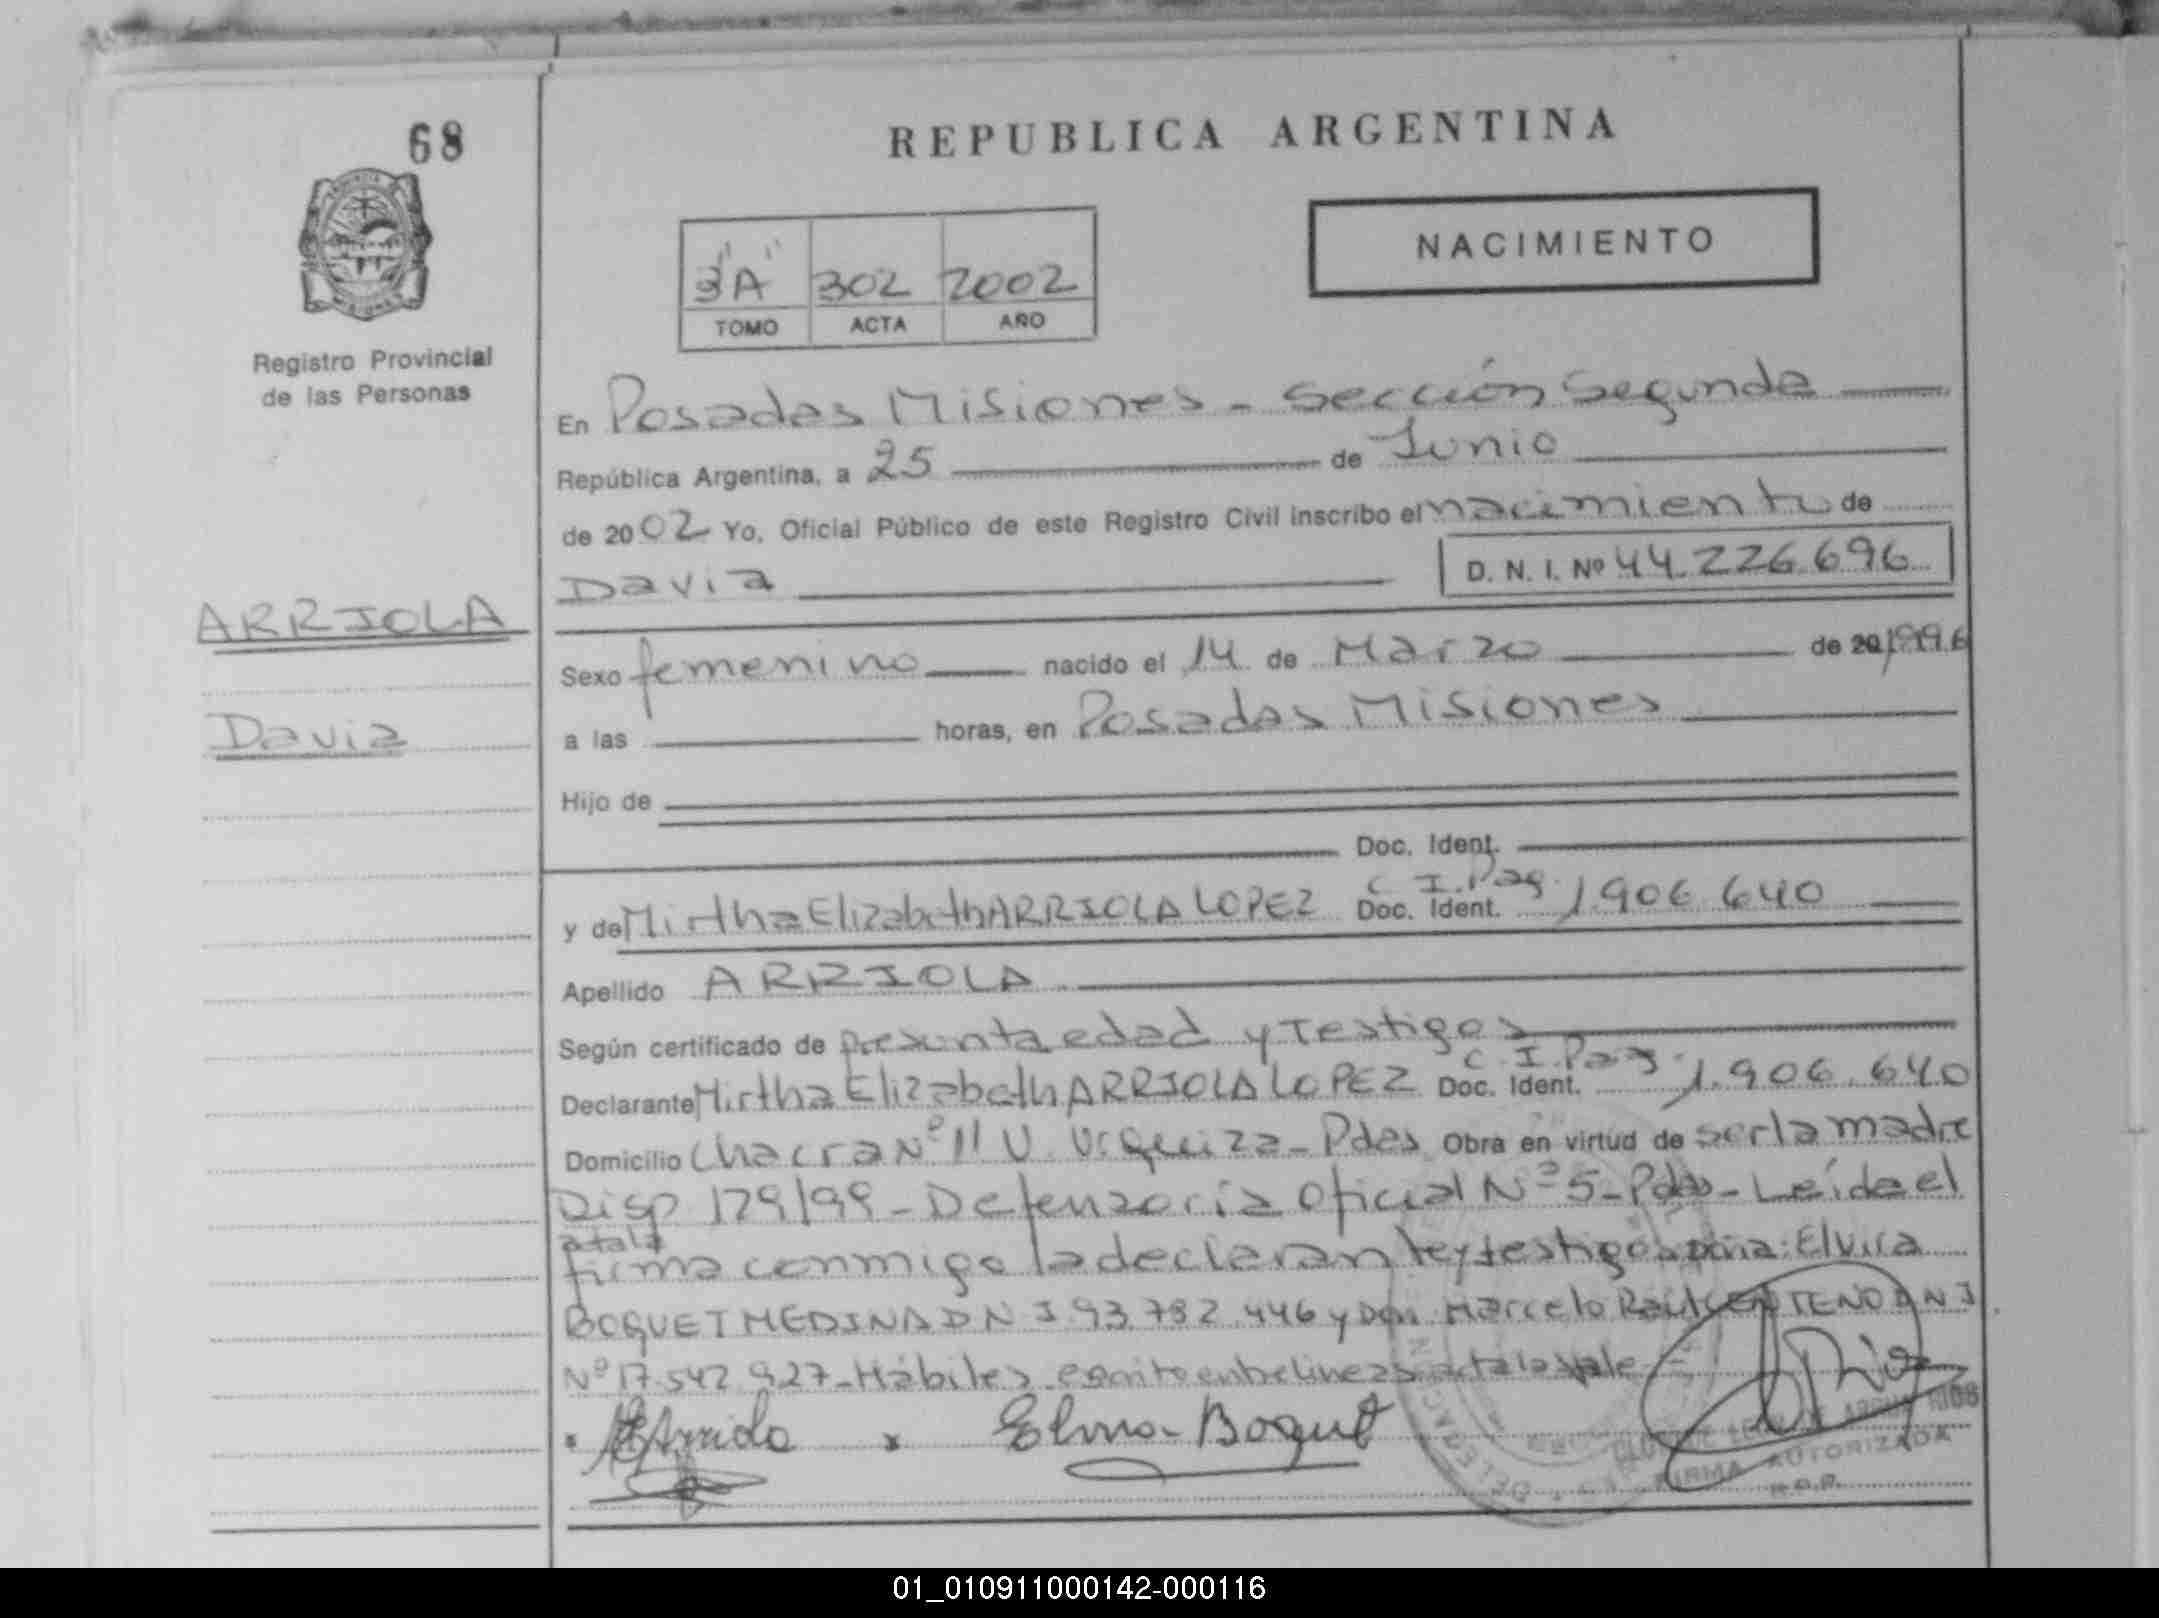 68
REPUBLICA ARGENTINA
NACIMIENTO
3 "A" 302 2002
TOMO ACTA AÑO
Registro Provincial
de las Personas
En Posadas Misiones - Sección Segunda
República Argentina, a 25 de Junio
de 2002 Yo, Oficial Público de este Registro Civil inscribo el nacimiento de
Davia D. N. I. Nº 44.226.696
ARRIOLA
Davia
Sexo femenino nacido el 14 de Marzo de 20/1996
a las horas, en Posadas Misiones
Hijo de
Doc. Ident.
y de Mirtha Elizabeth ARRIOLA LOPEZ Doc. Ident. C.I.Pag. 1.906.640
Apellido ARRIOLA
Según certificado de presunta edad y Testigos
Declarante Mirtha Elizabeth ARRIOLA LOPEZ Doc. Ident. C.I.Pag. 1.906.640
Domicilio Chacra Nº 11 V. Urquiza - Pdas Obra en virtud de ser la madre
Disp 179/99 - Defensoría Oficial Nº 5 - Pdas - Leída el
acta la
firma conmigo la declarante y testigos doña: Elvira
BOGUET MEDINA D N I 93.782.446 y Don Marcelo Raúl CENTENO D N I
Nº 17.542.927 - Hábiles escrito entrelineas acta la vale -
Elvira Boguet
DELEGACION
FIRMA AUTORIZADA
01_010911000142-000116